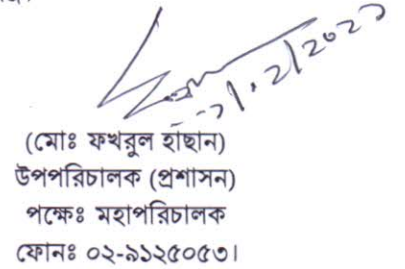 (মোঃ ফখরুল হাছান)
উপপরিচালক (প্রশাসন)
পক্ষেঃ মহাপরিচালক
ফোনঃ ০২-৯১২৫০৫৩।